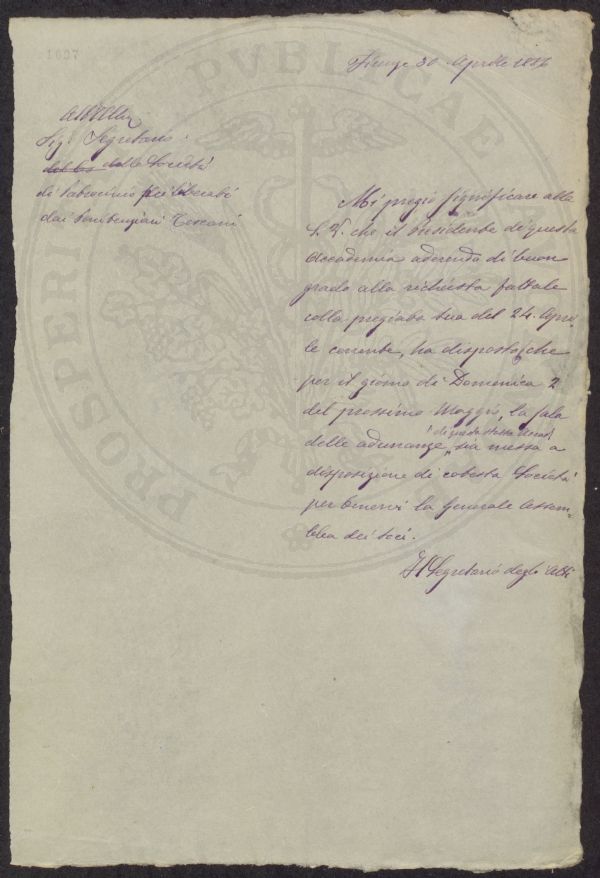 1607
Firenze 30 Aprile 1886
Sig. Segretario
del Co della Società
di Patrocinio pei liberati
dai Penitenziari Toscani
Mi pregio significare alla
S. V. che il Presidente di questa
Accademia aderendo di buon
grado alla richiesta fattale
colla pregiata sua del 24. Apri-
le corrente, ha disposto che
per il giorno di Domenica 2
del prossimo Maggio, la sala
delle adunanze, sia messa a
disposizione di cotesta Società
per tenervi la Generale Assem-
blea dei Soci.
Il Segretario degli Atti
PROSPERI
PVBLICAE